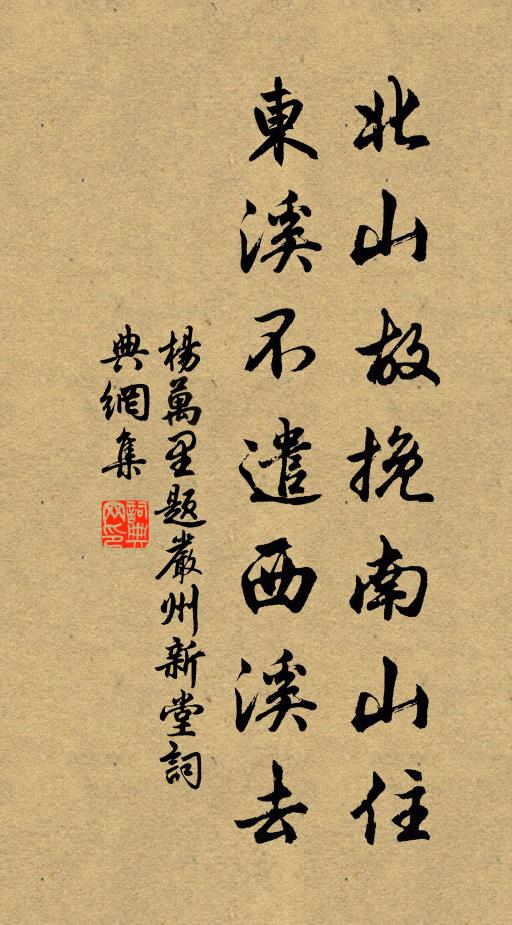 北山故挽南山住
東溪不遣西溪去
楊萬里題嚴州新堂詞
典網集
詞典
网印